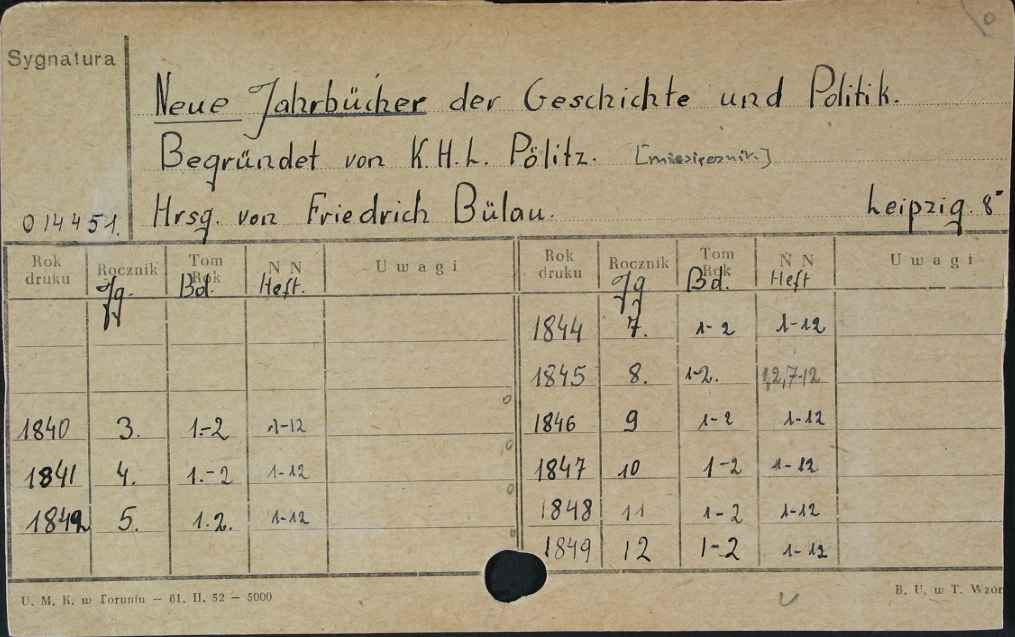 Sygnatura
Neue Jahrbücher der Geschichte und Politik.
Begründet von K.H.L. Pölitz. [miesięcznik.]
014451. Hrsg. von Friedrich Bülau. Leipzig. 8°
Rok druku Rocznik Tom Rok N N Uwagi Rok druku Rocznik Tom Rok N N Uwagi
Jg. Bd. Heft. Jg Bd. Heft
1844 7. 1-2 1-12
1845 8. 1-2. 1,2,7-12
1840 3. 1.-2 1-12 1846 9 1-2 1-12
1841 4. 1.-2 1-12 1847 10 1-2 1-12
1842 5. 1.2. 1-12 1848 11 1-2 1-12
1849 12 1-2 1-12
U. M. K. w Toruniu — 61. II. 52 — 5000 B. U. w T. Wzór